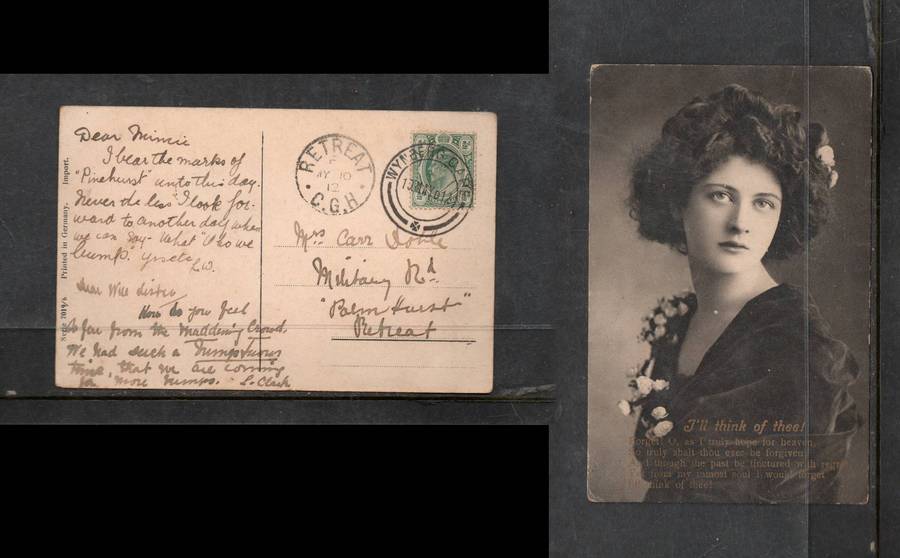 Dear Minnie
I bear the marks of
"Pinehurst" unto this day.
Never the less I look for-
ward to another day when
we can say - What "Oho we
bump." Yrs etc
L.W.
Dear Wee
How do you feel
so far from the Maddening Crowd.
We had such a Bumpshious
time, that we are coming
for more bumps. L. Clark
Serie 2019/6 Printed in Germany. Import.
RETREAT
MY 10
12
C.G.H.
WYNBERG-CAPE
Mrs Carr
Military Rd
"Palm Hurst"
Retreat
I'll think of thee!
Forget! O, as I truly hope for heaven,
So truly shalt thou ever be forgiven
And though the past be tinctured with regret
from my inmost soul I would forget
I'll think of thee!